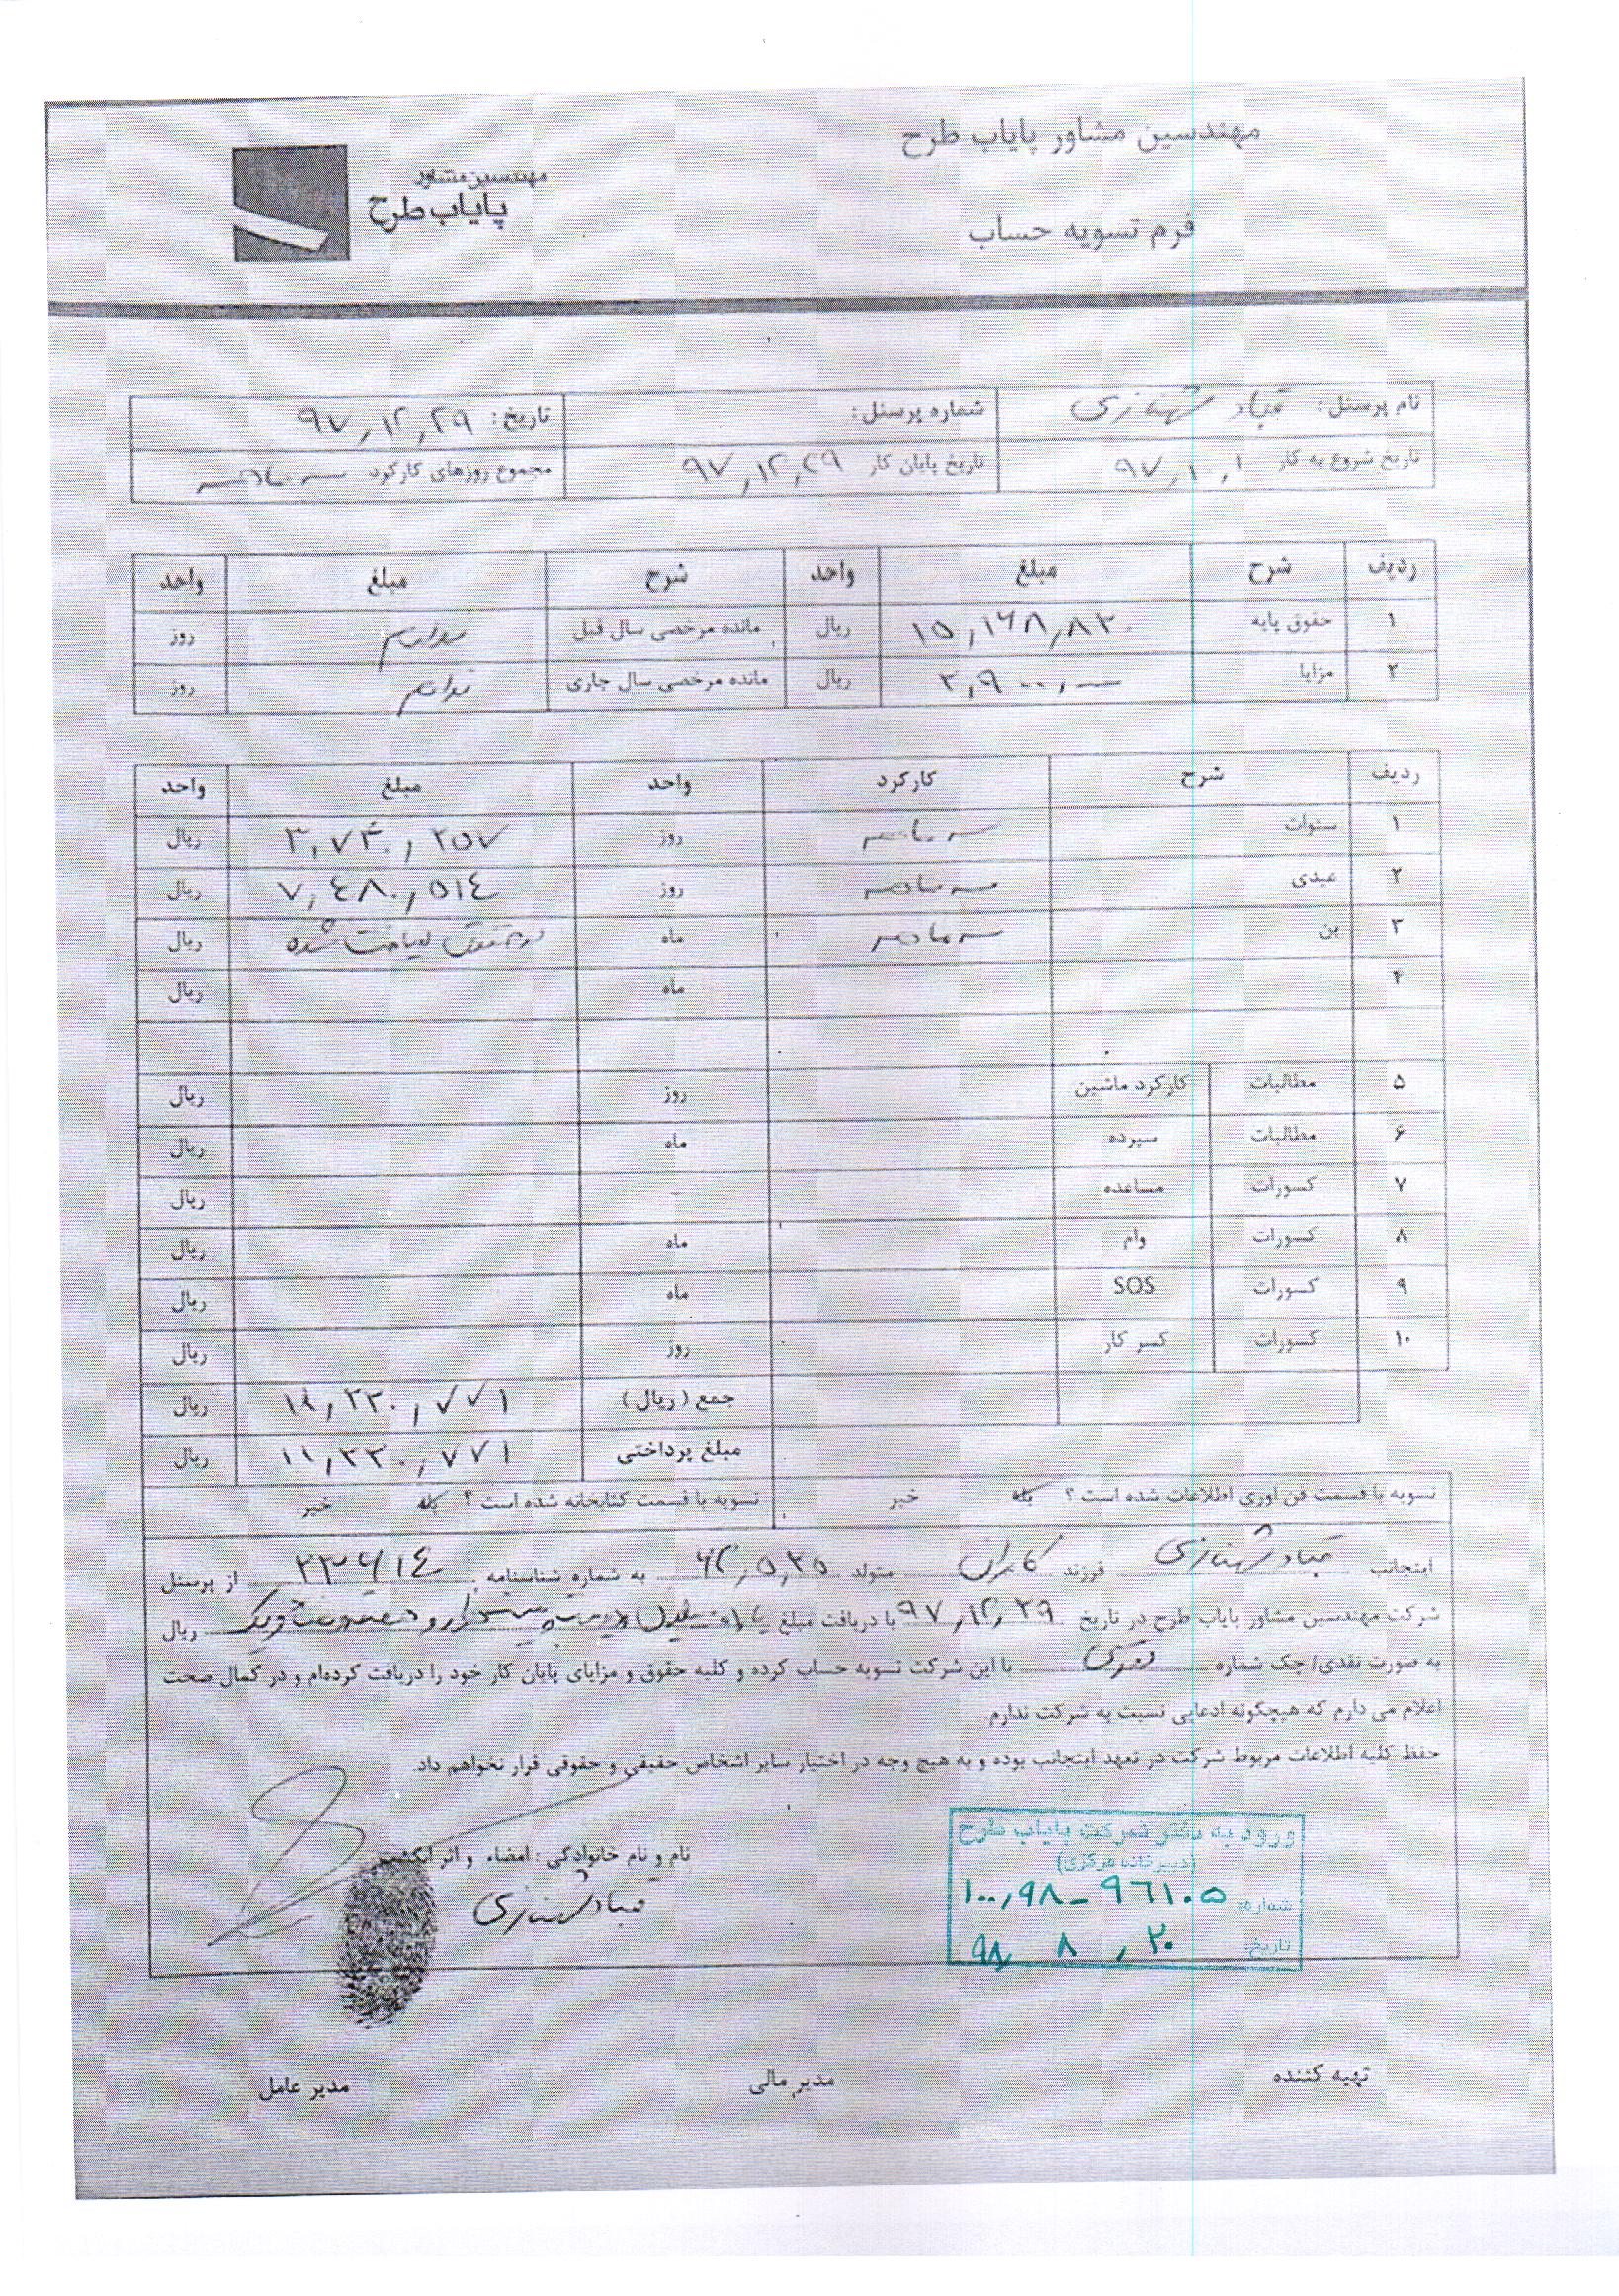 مهندسین مشاور پایاب طرح
مهندسین مشاور
پایاب طرح
فرم تسویه حساب
نام پرسنل: قباد شهنازی شماره پرسنل: تاریخ: ۹۷,۱۲,۲۹
تاریخ شروع به کار ۹۷,۱۰,۱ تاریخ پایان کار ۹۷,۱۲,۲۹ مجموع روزهای کارکرد سه ماهه
ردیف شرح مبلغ واحد شرح مبلغ واحد
۱ حقوق پایه ۱۵,۱۶۸,۸۲۰ ریال مانده مرخصی سال قبل ندارم روز
۲ مزایا ۲,۹۰۰,۰۰۰ ریال مانده مرخصی سال جاری ندارم روز
ردیف شرح کارکرد واحد مبلغ واحد
۱ سنوات سه ماهه روز ۳,۷۴۰,۲۵۷ ریال
۲ عیدی سه ماهه روز ۷,۴۸۰,۵۱۴ ریال
۳ بن سه ماهه ماه شده ریال
۴ ماه ریال
۵ مطالبات کارکرد ماشین روز ریال
۶ مطالبات سپرده ماه ریال
۷ کسورات مساعده - ریال
۸ کسورات وام ماه ریال
۹ کسورات SOS ماه ریال
۱۰ کسورات کسر کار روز ریال
جمع (ریال) ۱۱,۲۲۰,۷۷۱ ریال
مبلغ پرداختی ۱۱,۲۲۰,۷۷۱ ریال
تسویه با قسمت فن آوری اطلاعات شده است ؟ بله خیر تسویه با قسمت کتابخانه شده است ؟ بله خیر
اینجانب قباد شهنازی فرزند کامران متولد ۶۲,۵,۲۵ به شماره شناسنامه ۲۳۶۱۴ از پرسنل
شرکت مهندسین مشاور پایاب طرح در تاریخ ۹۷,۱۲,۲۹ با دریافت مبلغ یازده میلیون و دویست و بیست هزار و هفتصد و هفتاد و یک ریال
به صورت نقدی/ چک شماره نقدی با این شرکت تسویه حساب کرده و کلیه حقوق و مزایای پایان کار خود را دریافت کرده‌ام و در کمال صحت
اعلام می دارم که هیچگونه ادعایی نسبت به شرکت ندارم
حفظ کلیه اطلاعات مربوط شرکت در تعهد اینجانب بوده و به هیچ وجه در اختیار سایر اشخاص حقیقی و حقوقی قرار نخواهم داد.
نام و نام خانوادگی : امضاء و اثر انگشت
قباد شهنازی
ورود به دفتر شرکت پایاب طرح
(دبیرخانه مرکزی)
شماره: ۱۰۰,۹۸-۹۶۱۰۵
تاریخ: ۹۸, ۸ , ۲۰
تهیه کننده مدیر مالی مدیر عامل